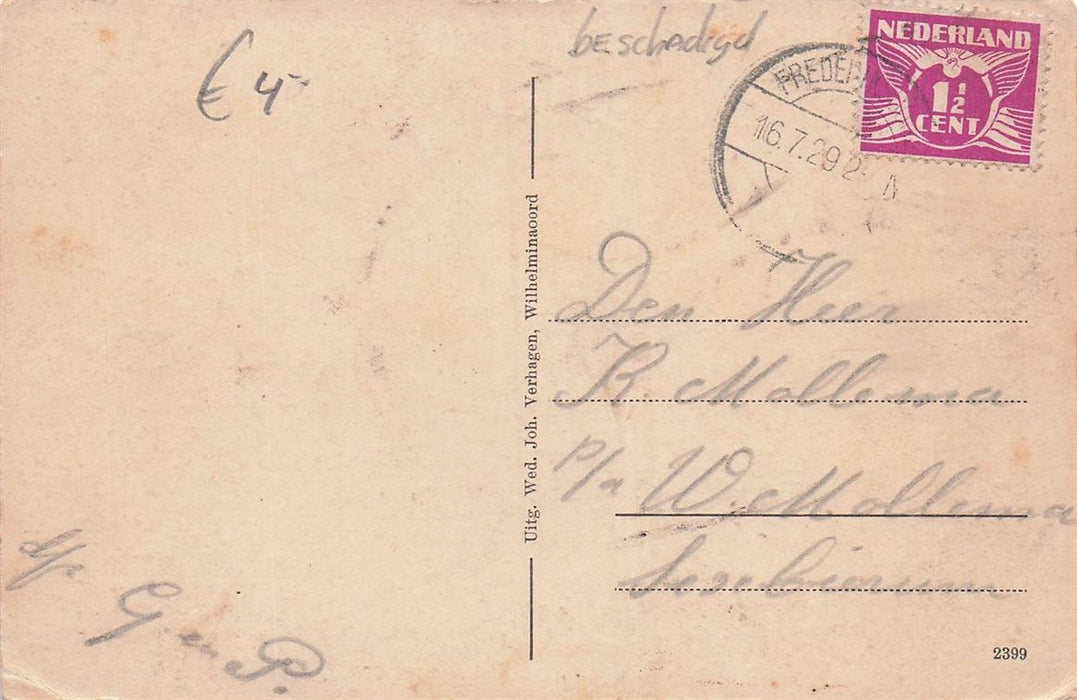 € 4-
beschadigd
NEDERLAND
1 1/2
CENT
16.7.29 2-
Uitg. Wed. Joh. Verhagen, Wilhelminaoord
Den Heer
K. Mollema
p/a W. Mollema
G en P.
2399